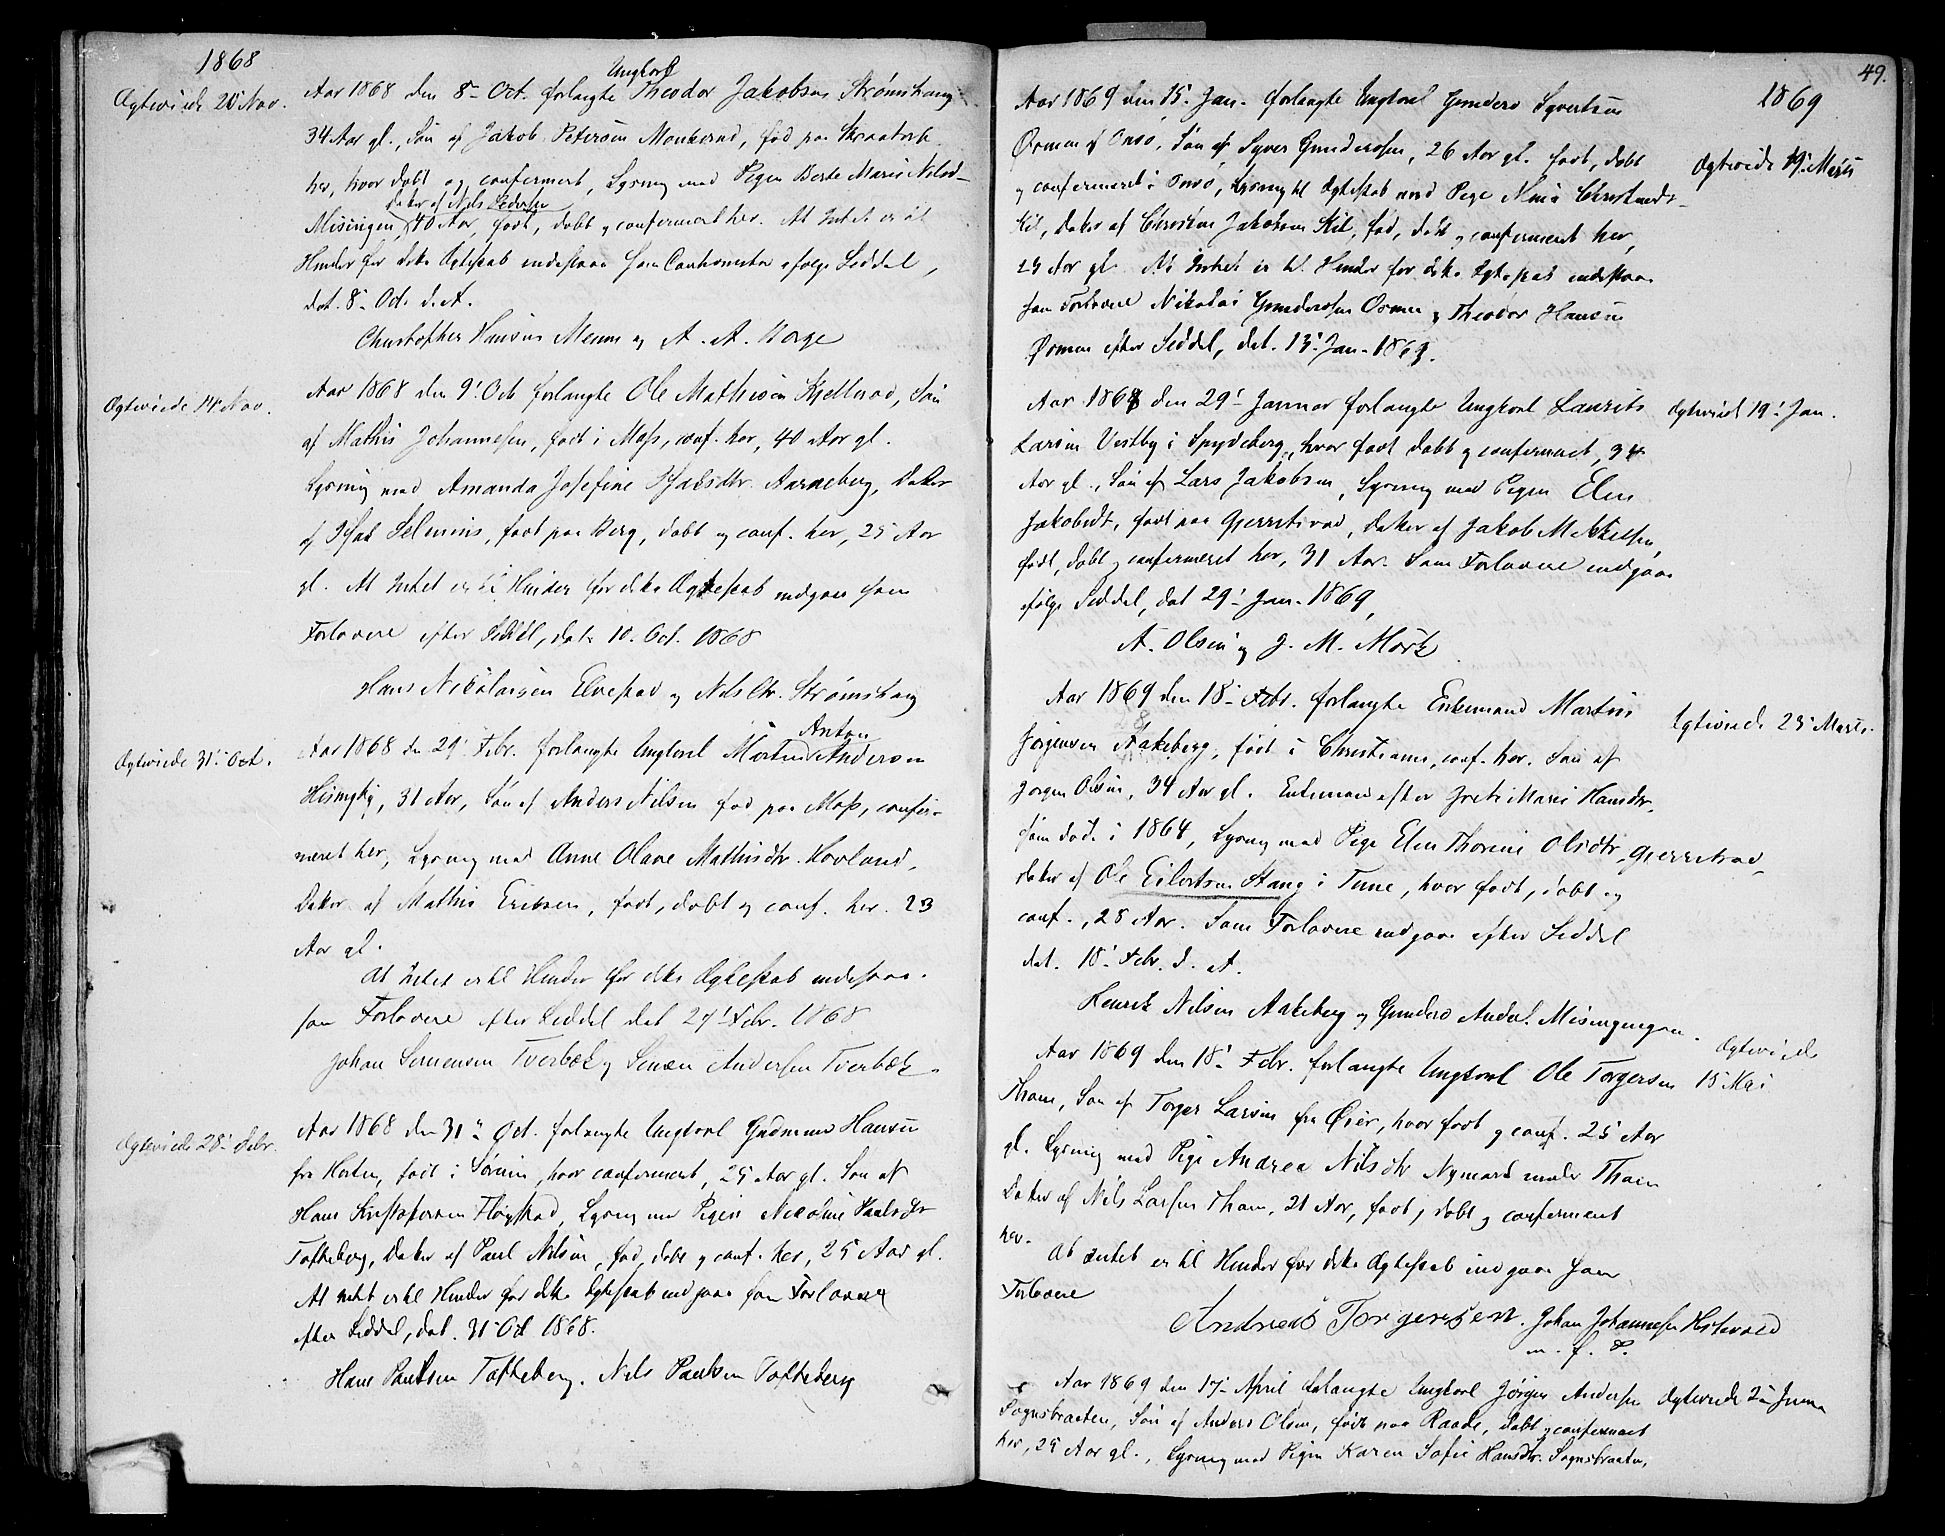 1868
Ægteviede 20 Nov.
Ungkarl
Aar 1868 den 8de Oct. forlangte Theodor Jakobsen Strømshaug
34 Aar gl., Søn af Jakob Petersen Monkerød, fød paa
her, hvor døbt og confirmert, Lysning med Pigen Berte Marie Nilsd-
Datter af Nils Pedersen
Missingen, 40 Aar, født, døbt og confirmert her. At Intet er til
Hinder for dette Ægteskab indestaae som Cautionister ifølge Seddel,
dat. 8de Oct. d. A.
Christopher Hansen Meum og A. A. Borge
Ægteviede 14 Nov.
Aar 1868 den 9de Octb forlangte Ole Mathisen Kjellerød, Søn
af Mathis Johannesen, født i Moss, conf. her, 40 Aar gl.
Lysning med Amanda Josefine Isaksdtr. Aarneberg, Datter
af Isak Selenius, født paa Berg, døbt og conf. her, 25 Aar
gl. At Intet er til Hinder for dette Ægteskab indgaae som
Forlovere efter Seddel, dat. 10. Oct. 1868
Hans Nikolaisen Elvestad og Nils Chr. Strømshaug
Ægteviede 31te Oct.
Anton
Aar 1868 den 29de Febr. forlangte Ungkarl Martin Andersen
31 Aar, Søn af Anders Nilsen fød paa Moss, confir-
meret her, Lysning med Anne Olave Mathisdtr. Hovland,
Datter af Mathis Eriksen, født, døbt og conf. her. 23
Aar gl.
At Intet er til Hinder for dette Ægteskab indestaae
som Forlovere efter Seddel dat 27de Febr. 1868
Johan Sørensen Tverbæk og Andersen Tverbæk.
Ægteviede 28de Febr.
Aar 1868 den 31te Oct. forlangte Ungkarl Gudmund Hansen
fra Horten, født i hvor confirmert, 25 Aar gl. Søn af
Hans Kristofersen Lysning med Pigen Nicoline Paulsdtr
Tofteberg, Datter af Paul Nilsen, fød, døbt og conf. her, 25 Aar gl.
At intet er til Hinder for dette Ægteskab indgaae som Forlovere
efter Seddel, dat. 31te Oct 1868.
Hans Paulsen Tofteberg. Nils Paulsen Tofteberg
49.
1869
Aar 1869 den 15de Jan. forlangte Ungkarl Gunders Syvertsen
Ørmen af Onsø, Søn af Syver Gundersen, 26 Aar gl. født, døbt
og confirmeret i Onsø, Lysning til Ægteskab med Pige Nina Christiansdt-
Kil, Datter af Christian Jakobsen Kil, fød, døbt og confirmeret her,
Ægteviede 19de Marts
23 Aar gl. At Intet er til Hinder for dette Ægteskab indestaae
som Forlovere Nikolai Gundersen Ørmen og Theodor Hansen
Ørmen efter Seddel, dat. 13de Jan. 1869.
Aar 1869 den 29de Januar forlangte Ungkarl Laurits
Ægteviede 19de Jan.
Larsen Vestby i Spydeberg, hvor født døbt og confirmeret, 34
Aar gl., Søn af Lars Jakobsen, Lysning med Pigen Elen
Jakobsdt, født paa Gjerretsrød, Datter af Jakob Mikkelsen,
født, døbt og confirmeret her, 31 Aar. Som Forlovere indgaae
ifølge Seddel, dat 29de Jan. 1869,
A. Olsen og J. M. Mörk
Aar 1869 den 18de Febr. forlangte Enkemand Martin
Ægteviede 23de Marts.
Jørgensen Aakeberg, født i Christiania, conf. her. Søn af
Jørgen Olsen, 34 Aar gl. Enkeman efter Grethe Marie Hansdtr.
som døde i 1864, Lysning med Pige Elen Thorine Olsdtr, Gjerretsrød,
datter af Ole Eilertsen Stang i Tune, hvor født, døbt og
conf., 28 Aar. Som Forlovere indgaae efter Seddel
dat. 18de Febr. d. A.
Henrik Nilsen Aakeberg og Gunders Anders. Missingengen.
Ægteviede
Aar 1869 den 18de Febr. forlangte Ungkarl Ole Torgersen
15 Mai
Thom, Søn af Torger Larsen fra Øier, hvor født og conf. 25 Aar
gl. Lysning med Pige Andrea Nilsdtr Nymark under Thom
Datter af Nils Larsen Thom, 21 Aar, født, døbt og confirmeret
her.
At intet er til Hinder for dette Ægteskab indgaae som
Forlovere
Andreas Torgersen. Johan Johannesen
m. f. P.
Aar 1869 den 17de April forlangte Ungkarl Jørgen Andersen
Ægteviede 2de Juni
Sognsbraaten, Søn af Anders Olsen, født paa Raade, døbt og confirmeret
her, 25 Aar gl., Lysning med Pigen Karen Sofie Hansdtr. Sognsbraaten,